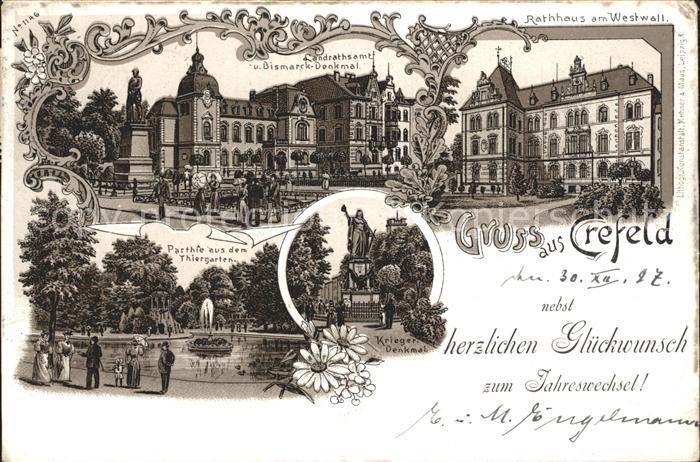 No 1146
Landrathsamt
u. Bismarck-Denkmal.
Rathhaus am Westwall.
Lithogr. Kunstanstalt, Kehner & Maas, Leipzig-R.
Parthie aus dem
Thiergarten.
Krieger
Denkmal
Gruss aus Crefeld
30. XII. 97.
nebst
herzlichen Glückwunsch
zum Jahreswechsel!
E. u. M. Engelmann